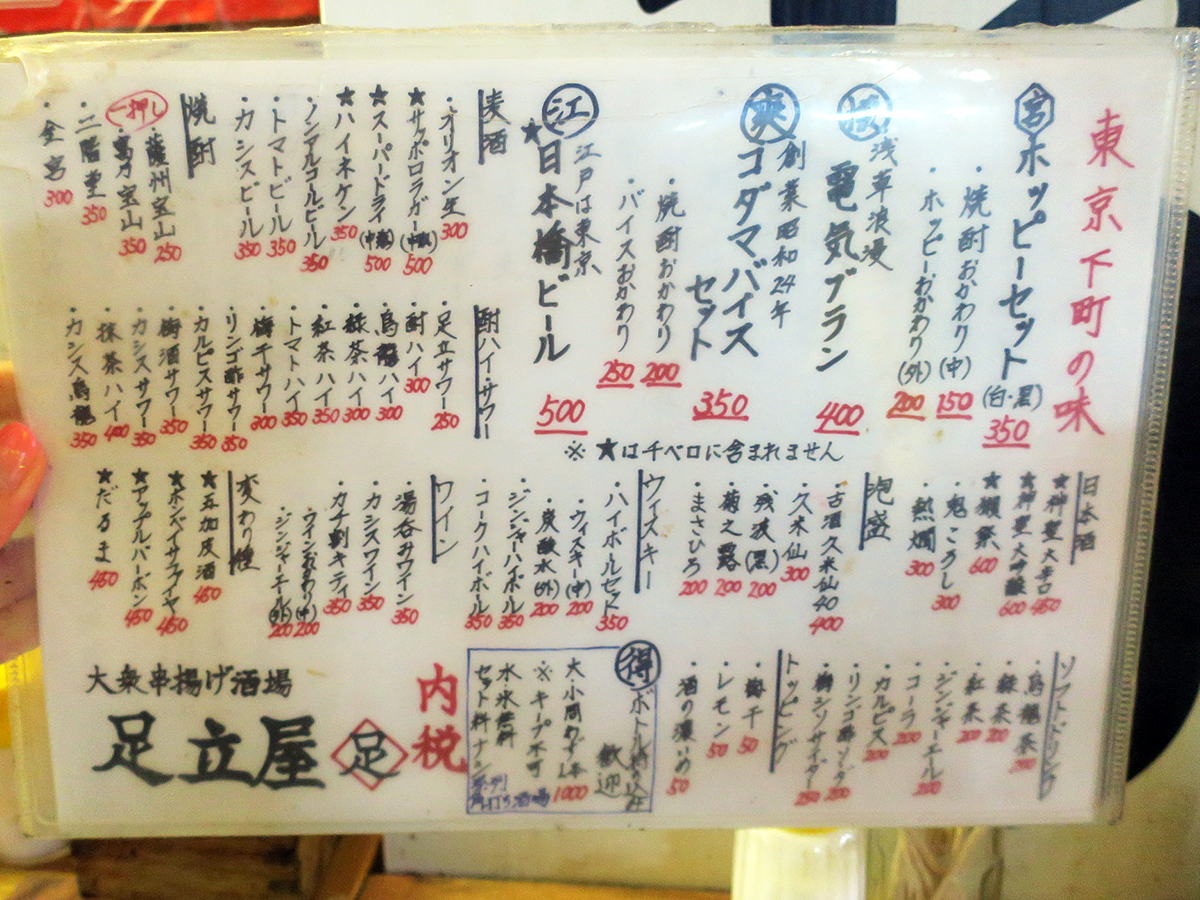 東京下町の味
宮 ホッピーセット(白・黒) 350
・焼酎おかわり(中) 150
・ホッピーおかわり(外) 200
浅草浪漫
電気ブラン 400
爽 創業昭和24年
コダマバイスセット 350
・焼酎おかわり 200
・バイスおかわり 250
江 江戸は東京
★日本橋ビール 500
※★はチベロに含まれません
麦酒
・オリオン生 300
★サッポロラガー(中瓶) 500
★スーパードライ(中瓶) 500
★ハイネケン 350
・ノンアルコールビール 350
・トマトビール 350
・カシスビール 350
焼酎
・薩州宝山 250
一押し
・富乃宝山 350
・二階堂 350
・金宮 300
酎ハイ・サワー
・足立サワー 250
・酎ハイ 300
・烏龍ハイ 300
・緑茶ハイ 300
・紅茶ハイ 350
・トマトハイ 350
・梅干サワー 300
・リンゴ酢サワー 350
・カルピスサワー 350
・梅酒サワー 350
・カシスサワー 350
・抹茶ハイ 400
・カシス烏龍 350
日本酒
★神聖大辛口 450
★神聖大吟醸 600
★獺祭 600
・鬼ころし 300
・熱燗 300
泡盛
・古酒久米仙40 400
・久米仙 300
・残波(黒) 200
・菊之露 200
・まさひろ 200
ウィスキー
・ハイボールセット 350
・ウィスキー(中) 200
・炭酸水(外) 200
・ジンジャーハイボール 350
・コークハイボール 350
ワイン
・湯呑みワイン 350
・カシスワイン 350
・カチ割キティ 350
・ワインおかわり(中) 200
・ジンジャーエール(外) 200
変わり種
★五加皮酒 450
★ボンベイサファイヤ 450
★アップルバーボン 450
★だるま 450
ソフトドリンク
・烏龍茶 200
・緑茶 200
・紅茶 200
・ジンジャーエール 200
・コーラ 200
・カルピス 200
・リンゴ酢ソーダ 200
・梅シソサイダー 250
トッピング
・梅干 50
・レモン 50
・酒の濃いめ 50
得 ボトル持ち込み
歓迎
大小問わず1本1000
※キープ不可
水氷無料
セット料ナシ
内税
大衆串揚げ酒場
足立屋 足